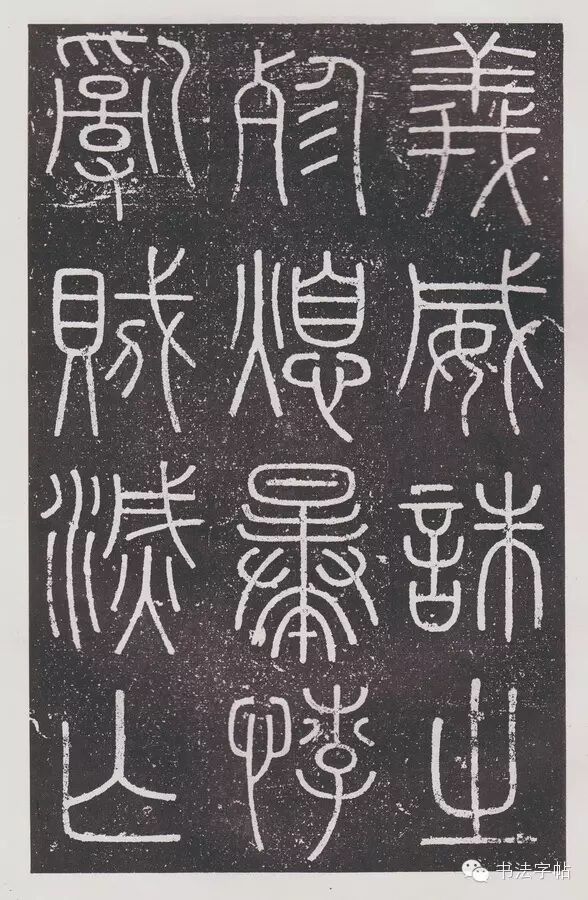 義威誅之
殄熄暴悖
亂賊滅亡
书法字帖